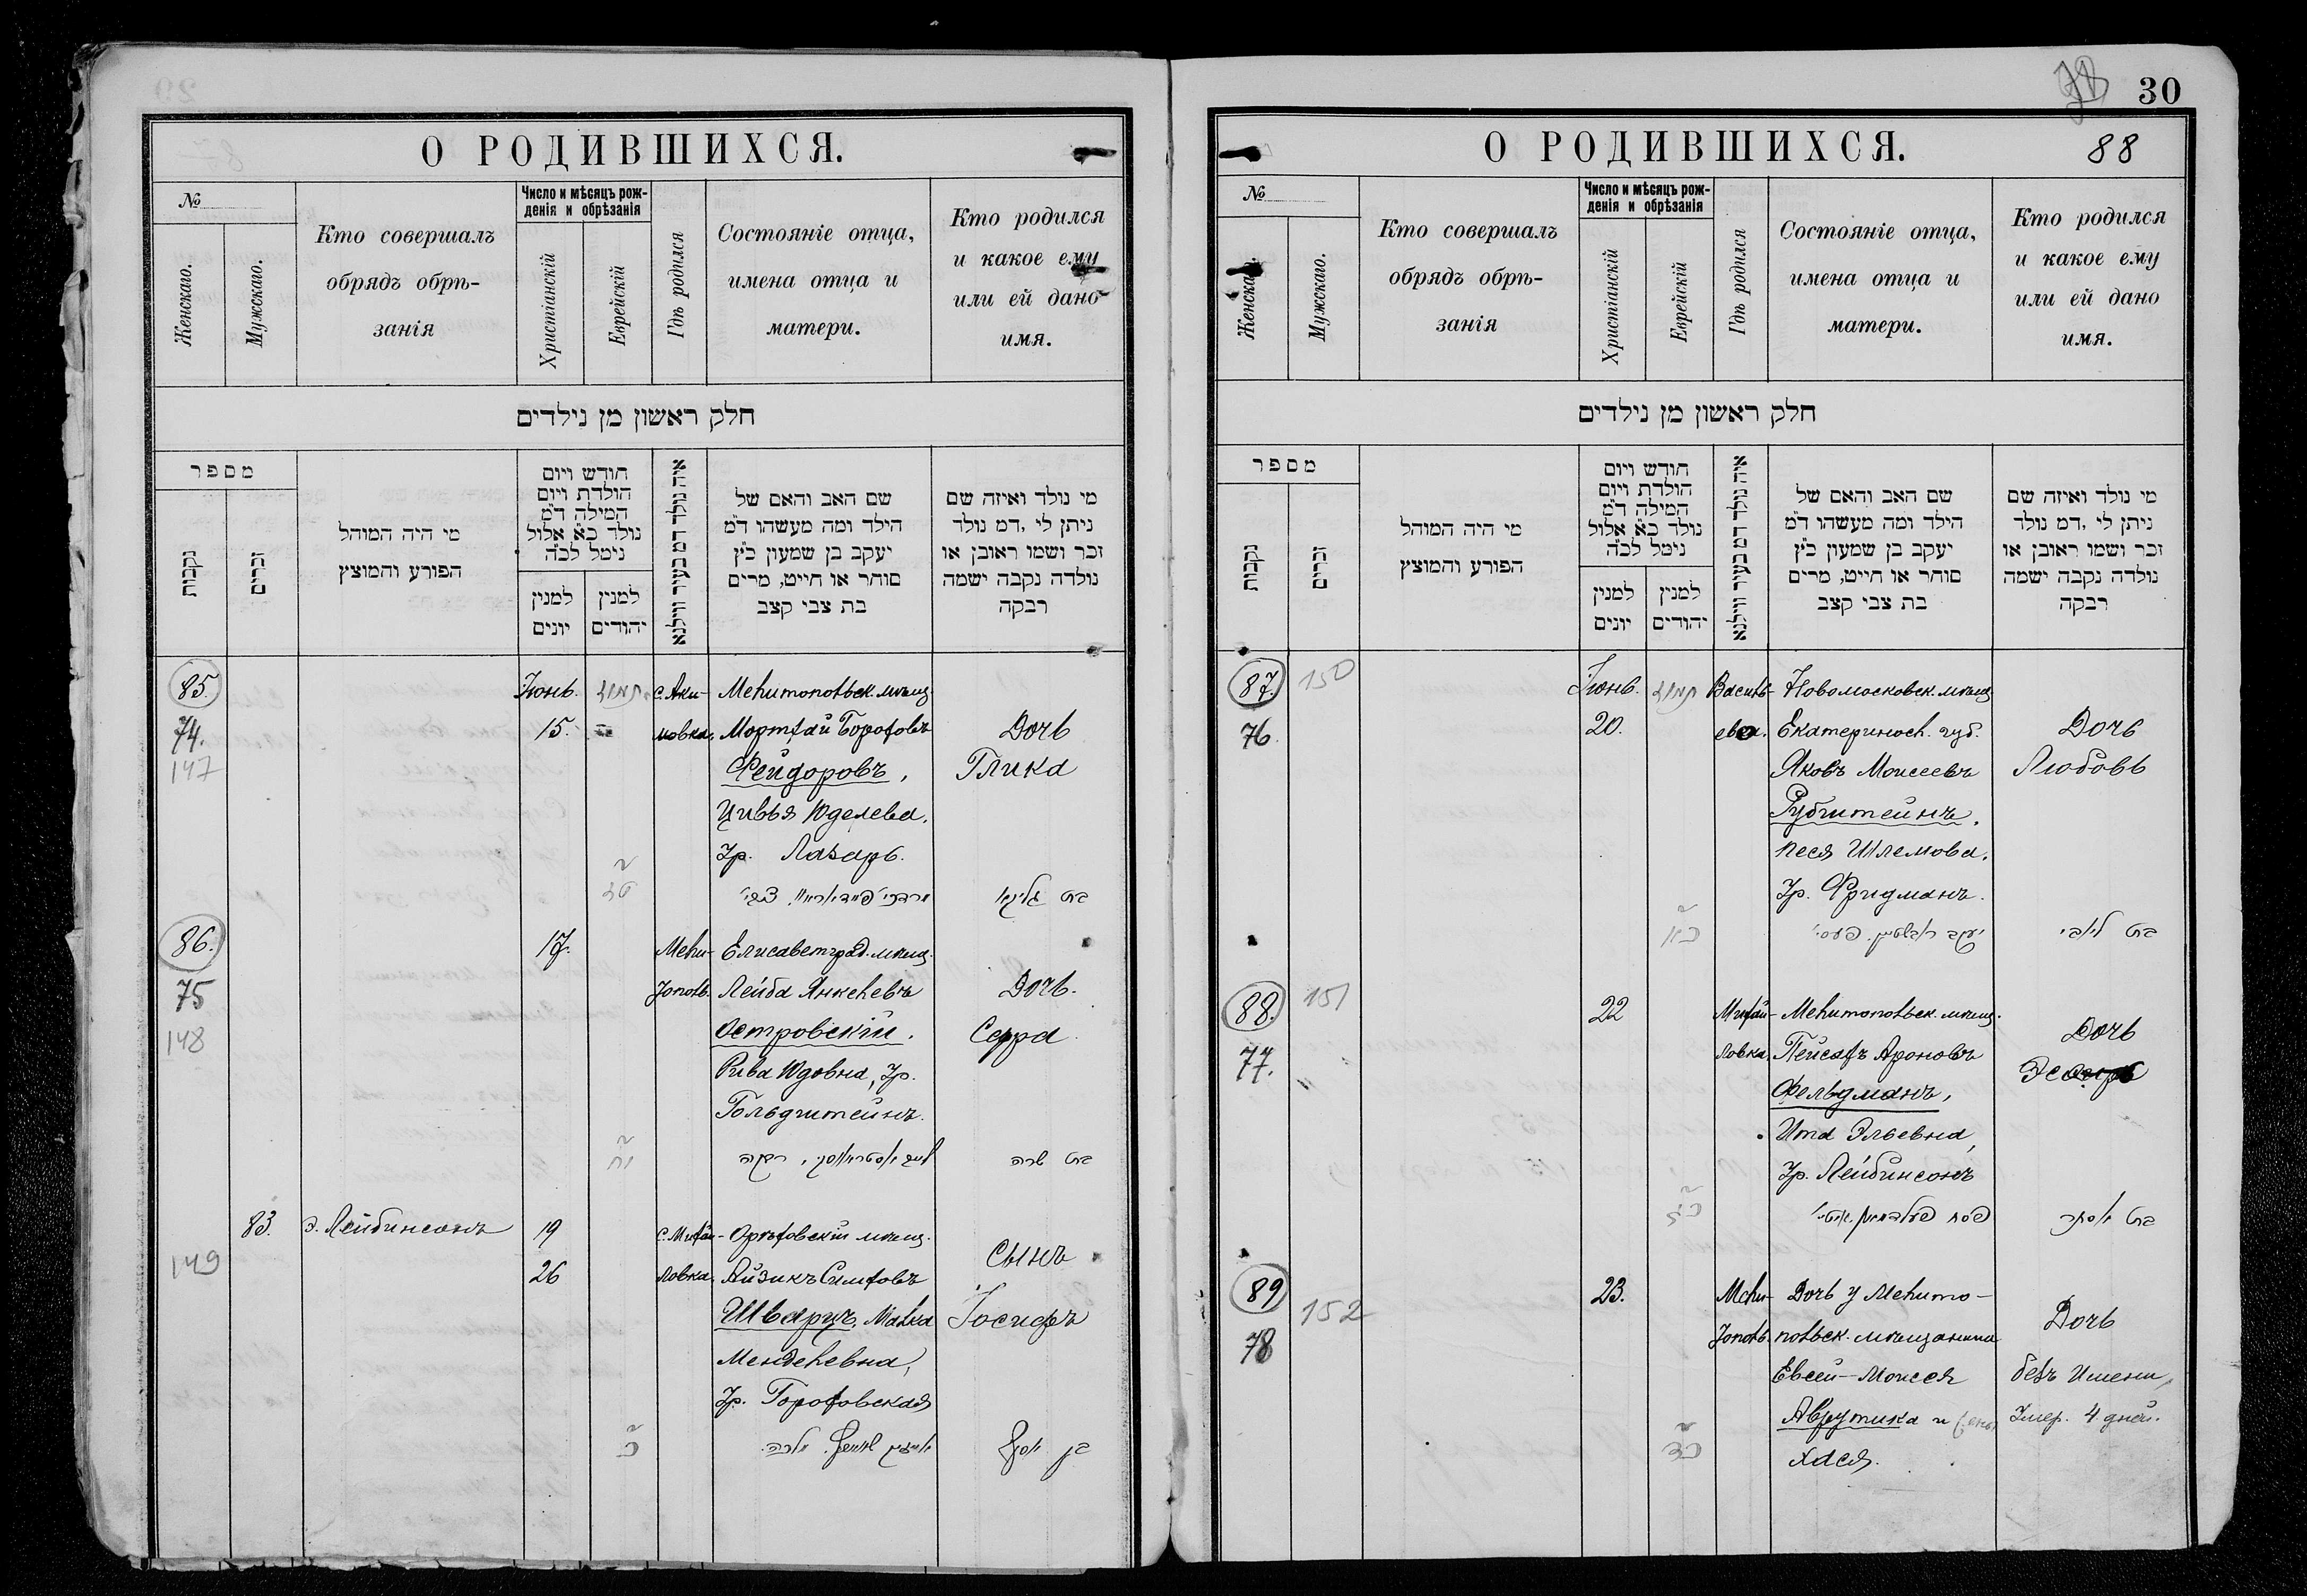 О РОДИВШИХСЯ.
№
Женскаго.
Мужскаго.
Кто совершалъ
обрядъ обрѣ-
занія
Число и мѣсяцъ рож-
денія и обрѣзанія
Христіанскій
Еврейскій
Гдѣ родился
Состояніе отца,
имена отца и
матери.
Кто родился
и какое ему
или ей дано
имя.
חלק ראשון מן נילדים
מספר
נקבות
זכרים
מי היה המוהל
הפורע והמוצץ
חודש ויום
הולדת ויום
המילה ד״מ
נולד כ״א אלול
נימל לכ״ה
למנין
יונים
למנין
יהודים
איה נולד דמ בעיר ווילנא
שם האב והאם של
הילד ומה מעשהו ד״מ
יעקב בן שמעון כ״ץ
סוחר או חייט, מרים
בת צבי קצב
מי נולד ואיזה שם
ניתן לי ,דמ נולד
זכר ושמו ראובן או
נולדה נקבה ישמה
רבקה
85.
74.
147
Іюнь.
15.
תמוז
ט
с. Аки-
мовка.
Мелитопольск. мѣщ.
Мортхай Бороховъ
Фейдоровъ,
Цивья Юделева.
Ур. Лазарь.
Дочь
Глика
בת גליקא
86.
75
148
17.
Мели-
тополь.
Елисаветград. мѣщ.
Лейба Янкелевъ
Островскій.
Рива Юдовна, Ур.
Гольдштейнъ.
Дочь.
Сарра
בת שרה
83.
149
Э. Лейбинсонъ
19
26
כ
с. Михай-
ловка.
Орѣховскій мѣщ.
Айзикъ Симховъ
Шварцъ. Малка
Менделевна,
Ур. Гороховская
Сынъ
Іосифъ
בן יוסף
30
О РОДИВШИХСЯ.
88
№
Женскаго.
Мужскаго.
Кто совершалъ
обрядъ обрѣ-
занія
Число и мѣсяцъ рож-
денія и обрѣзанія
Христіанскій
Еврейскій
Гдѣ родился
Состояніе отца,
имена отца и
матери.
Кто родился
и какое ему
или ей дано
имя.
חלק ראשון מן נילדים
מספר
נקבות
זכרים
מי היה המוהל
הפורע והמוצץ
חודש ויום
הולדת ויום
המילה ד״מ
נולד כ״א אלול
נימל לכ״ה
למנין
יונים
למנין
יהודים
איה נולד דמ בעיר ווילנא
שם האב והאם של
הילד ומה מעשהו ד״מ
יעקב בן שמעון כ״ץ
סוחר או חייט, מרים
בת צבי קצב
מי נולד ואיזה שם
ניתן לי ,דמ נולד
זכר ושמו ראובן או
נולדה נקבה ישמה
רבקה
87.
150
76
Іюнь.
20.
תמוז
Василь-
евка.
Новомосковск. мѣщ
Екатериносл. губ.
Яковъ Моисеевъ
Рубштейнъ.
Песя Шлемова.
Ур. Фридманъ.
Дочь
Любовь
88.
151
77.
22
Михай-
ловка.
Мелитопольск. мѣщ.
Пейсахъ Ароновъ
Фельдманъ,
Ита Эльевна,
Ур. Лейбинсонъ
פסח פעלדמאן
Дочь
Эсѳирь
בת אסתר
89
152
78
23.
כד
Мели-
тополь.
Дочь у Мелито-
польск. мѣщанина
Евсей-Моисея
Аврутика и
Хася.
Дочь
безъ Имени,
Умер. 4 дней.